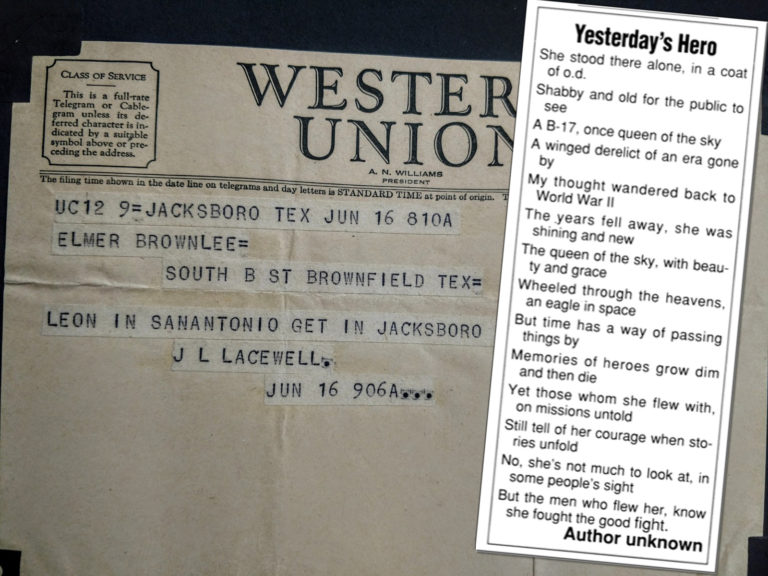 CLASS OF SERVICE
This is a full-rate
Telegram or Cable-
gram unless its de-
ferred character is in-
dicated by a suitable
symbol above or pre-
ceding the address.
WESTER
UNION
A. N. WILLIAMS
PRESIDENT
The filing time shown in the date line on telegrams and day letters is STANDARD TIME at point of origin.
UC12 9=JACKSBORO TEX JUN 16 810A
ELMER BROWNLEE=
SOUTH B ST BROWNFIELD TEX=
LEON IN SANANTONIO GET IN JACKSBORO
J L LACEWELL.
JUN 16 906A...
Yesterday's Hero
She stood there alone, in a coat
of o.d.
Shabby and old for the public to
see
A B-17, once queen of the sky
A winged derelict of an era gone
by
My thought wandered back to
World War II
The years fell away, she was
shining and new
The queen of the sky, with beau-
ty and grace
Wheeled through the heavens,
an eagle in space
But time has a way of passing
things by
Memories of heroes grow dim
and then die
Yet those whom she flew with,
on missions untold
Still tell of her courage when sto-
ries unfold
No, she's not much to look at, in
some people's sight
But the men who flew her, know
she fought the good fight.
Author unknown